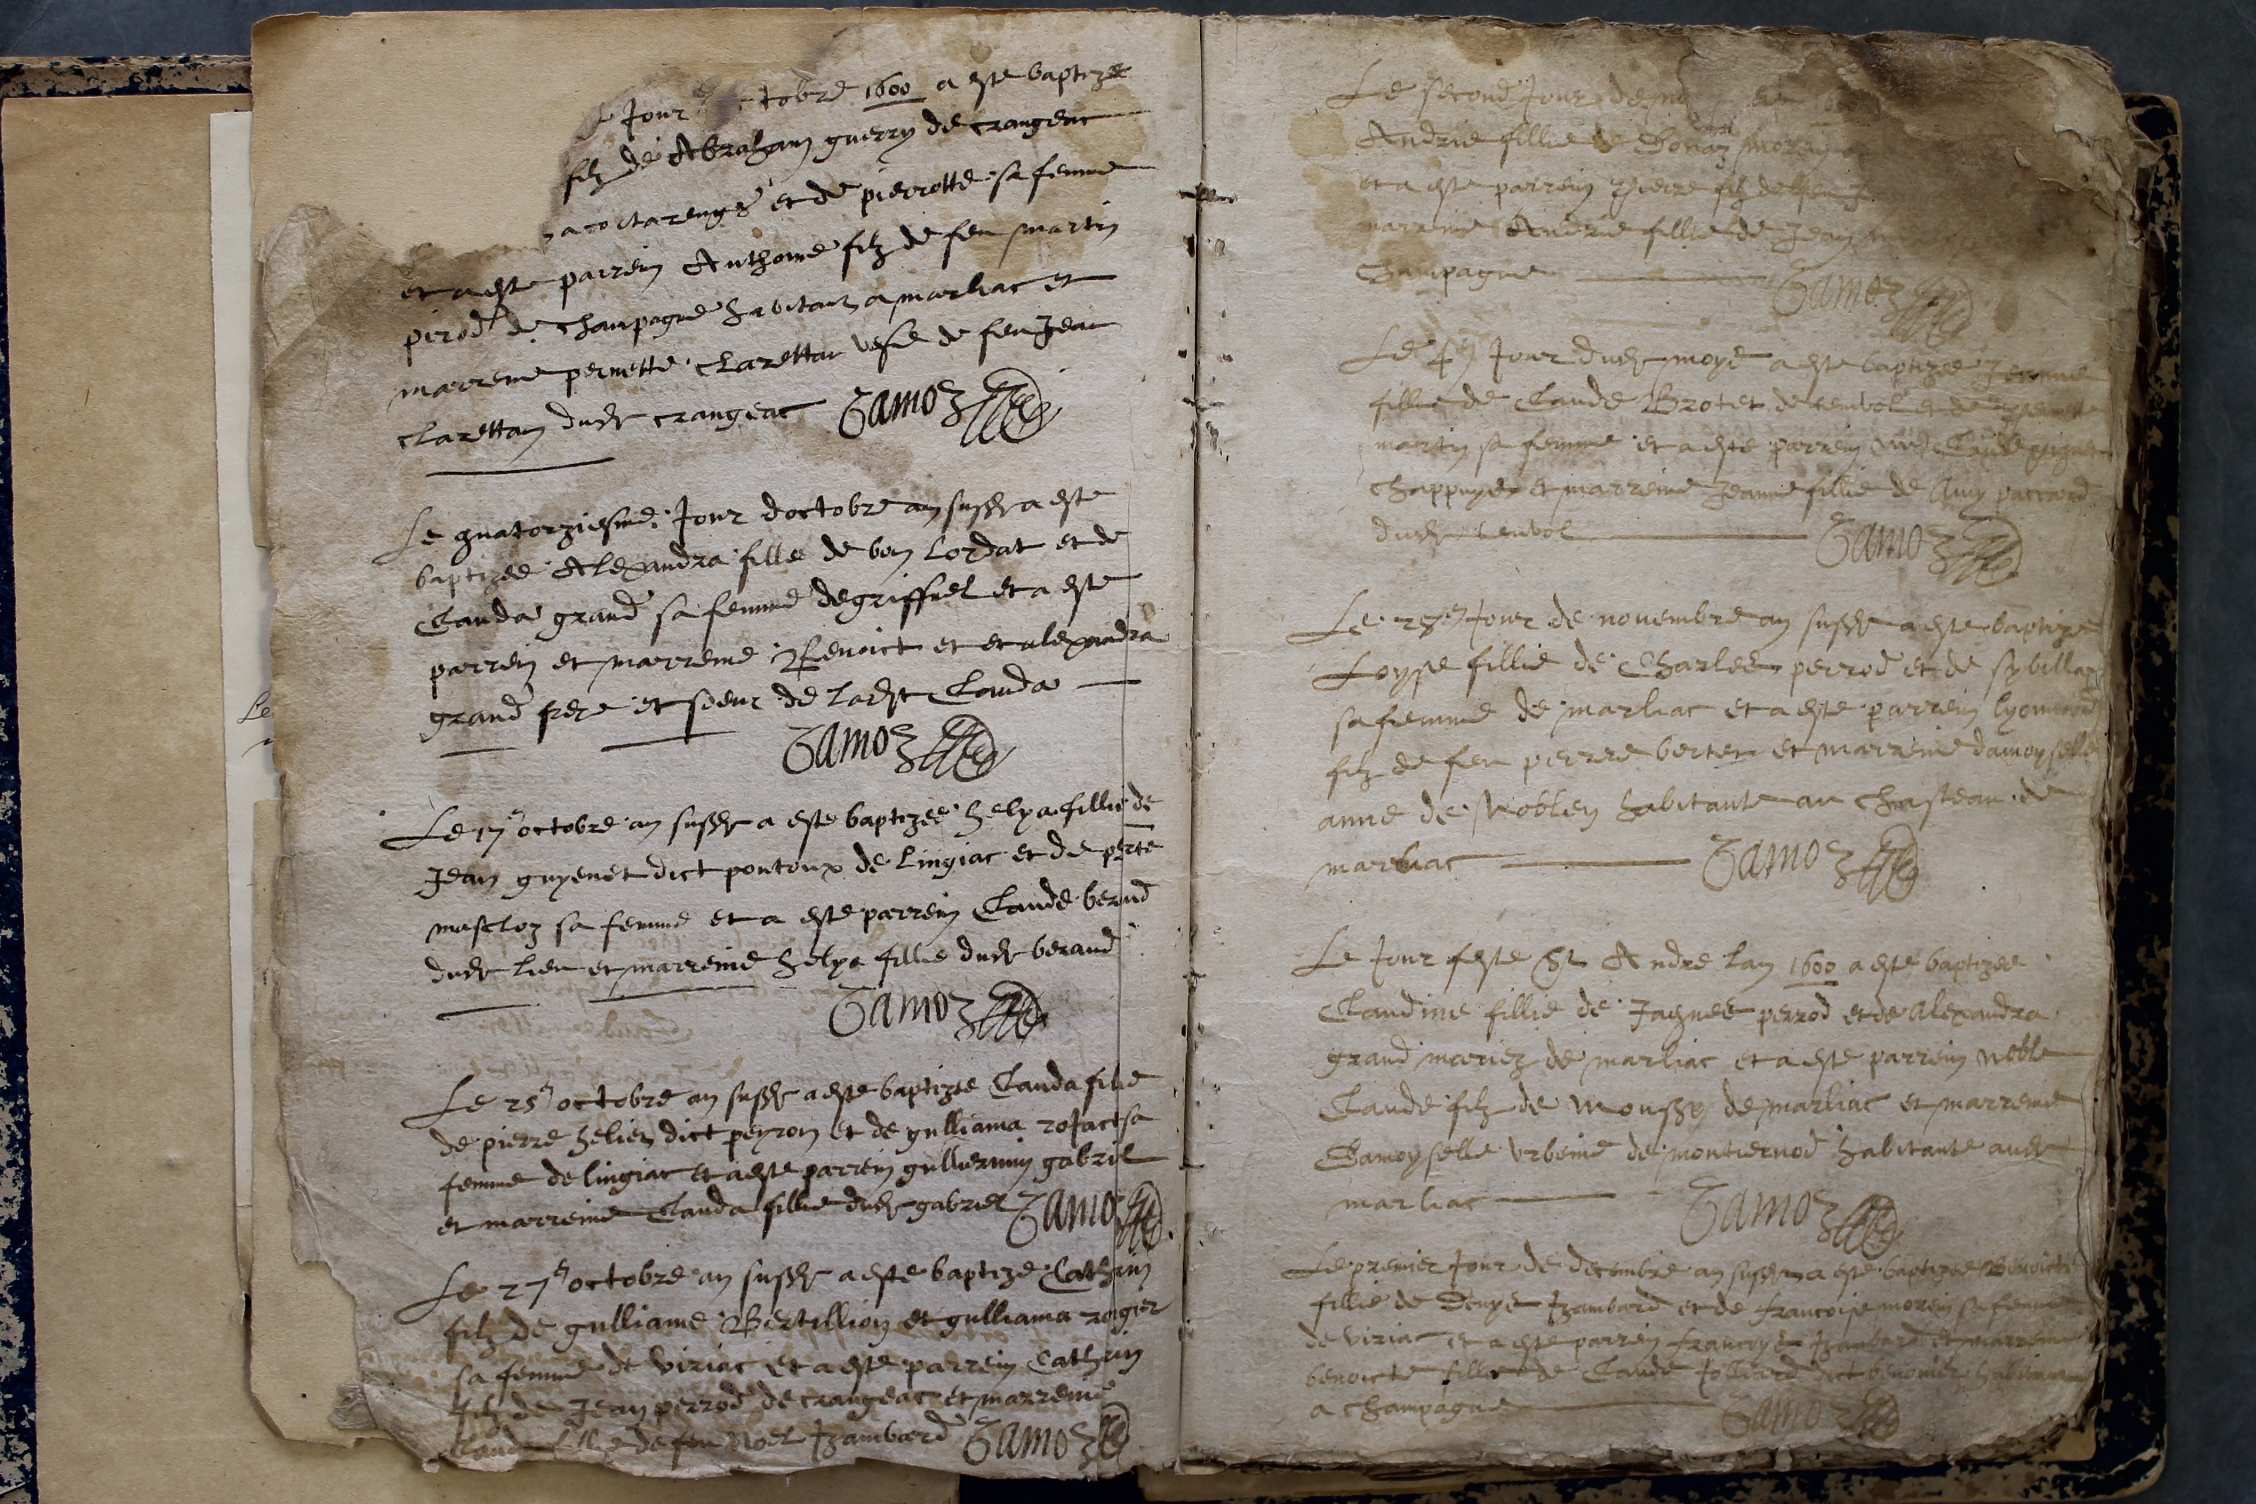 Jour octobre 1600 a este baptize
filz de Abraham guerry de crangeac
et de pierrotte sa femme
et a este parrein Anthoine filz de feu martin
pirod de champagne habitant a marliac et
marreme pernette clarettan vefve de feu Jean
clarettan dudt crangeac Tamoz
Le quatorziesme Jour doctobre an susdt a este
baptizee Alexandra fille de ben lordat et de
Clauda grand sa femme de griffuel et a este
parrein et marreme Benoict et et alexandra
grand frere et soeur de ladte Clauda
Tamoz
Le 17e octobre an susdt a este baptizee helya fillie de
Jean guyenet dict pontoux de lingiac et de perte
mascloz sa femme et a este parrein Claude beraud
dudt lieu et marreine helya fillie dudt beraud
Tamoz
Le 25e octobre an susdt a este baptizee Clauda fillie
de pierre helien dict peyron et de gulliama rojact sa
femme de lingiac et a este parrein gulliermin gabriel
et marreine Clauda fillie dudt gabriel Tamoz
Le 27e octobre an susdt a este baptize Cathrin
filz de gulliame Bertillion et gulliama rogier
sa femme de viriac et a este parrein Cathrin
filz de Jean perrod de crangeac et marreme
fillie de feu Noel Jzambard Tamoz
Le second Jour de
Andrie fillie de
et a este parrein pierre filz de feu
marreine Andrie fillie de Jean
Champagne Tamoz
Le Jour dudt moys a este baptizee Jeanne
fillie de Claude Brotet de cenvol et de
martin sa femme et a este parrein Claude
chappuys et marreine Jeanne fillie de Amy paccard
dudt cenvol Tamoz
Le 28e Jour de novembre an susdt a este baptize
Loyse fillie de Charles perrod et de sybilla
sa femme de marliac et a este parrein
filz de feu pierre bertet et marreine damoyselle
anne de Noblen habitante au chasteau de
marliac Tamoz
Le Jour feste St Andre lan 1600 a este baptizee
Claudine fillie de Jaques perrod et de Alexandra
grand mariez de marliac et a este parrein noble
Claude filz de Moussy de marliac et marreme
Damoyselle urbeine de montiernod habitante audt
marliac Tamoz
Le premier Jour de decembre an susdt a este baptizee Benoicte
fillie de Denys Jzambard et de francoise morein sa femme
de viriac et a este parrein francoys Jzambard et marreme
benoicte fillie de Claude Jolliard dict
a champagne Tamoz